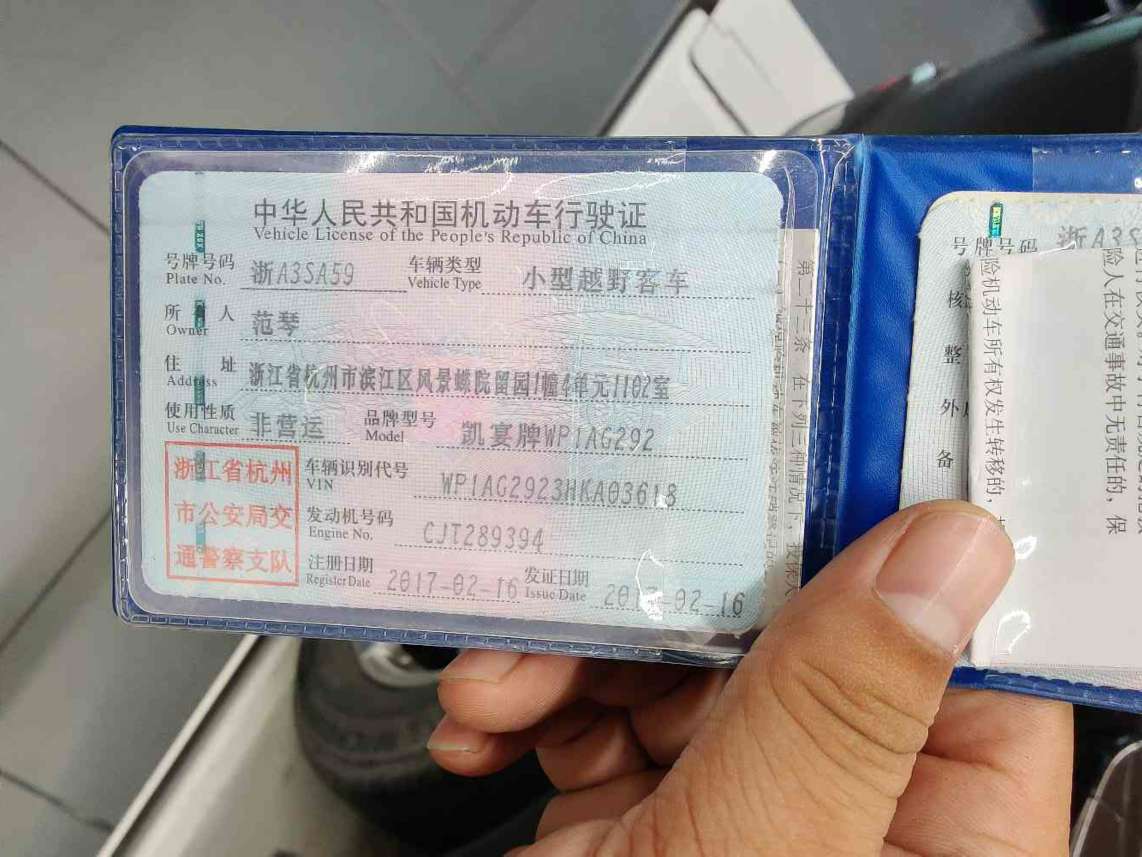 中华人民共和国机动车行驶证
Vehicle License of the People's Republic of China
号牌号码 浙A3SA59 车辆类型 小型越野客车
Plate No. Vehicle Type
所有人 范琴
Owner
住址 浙江省杭州市滨江区风景蝶院留园1幢4单元1102室
Address
使用性质 非营运 品牌型号 凯宴牌WP1AG292
Use Character Model
浙江省杭州
市公安局交
通警察支队
车辆识别代号 WP1AG2923HKA03618
VIN
发动机号码 CJT289394
Engine No.
注册日期 2017-02-16 发证日期 2017-02-16
Register Date Issue Date
第二十三条 在下列三种情况下,投保人
号牌号码 浙A3S
核
整
外
备
险人在交通事故中无责任的,保
险机动车所有权发生转移的,